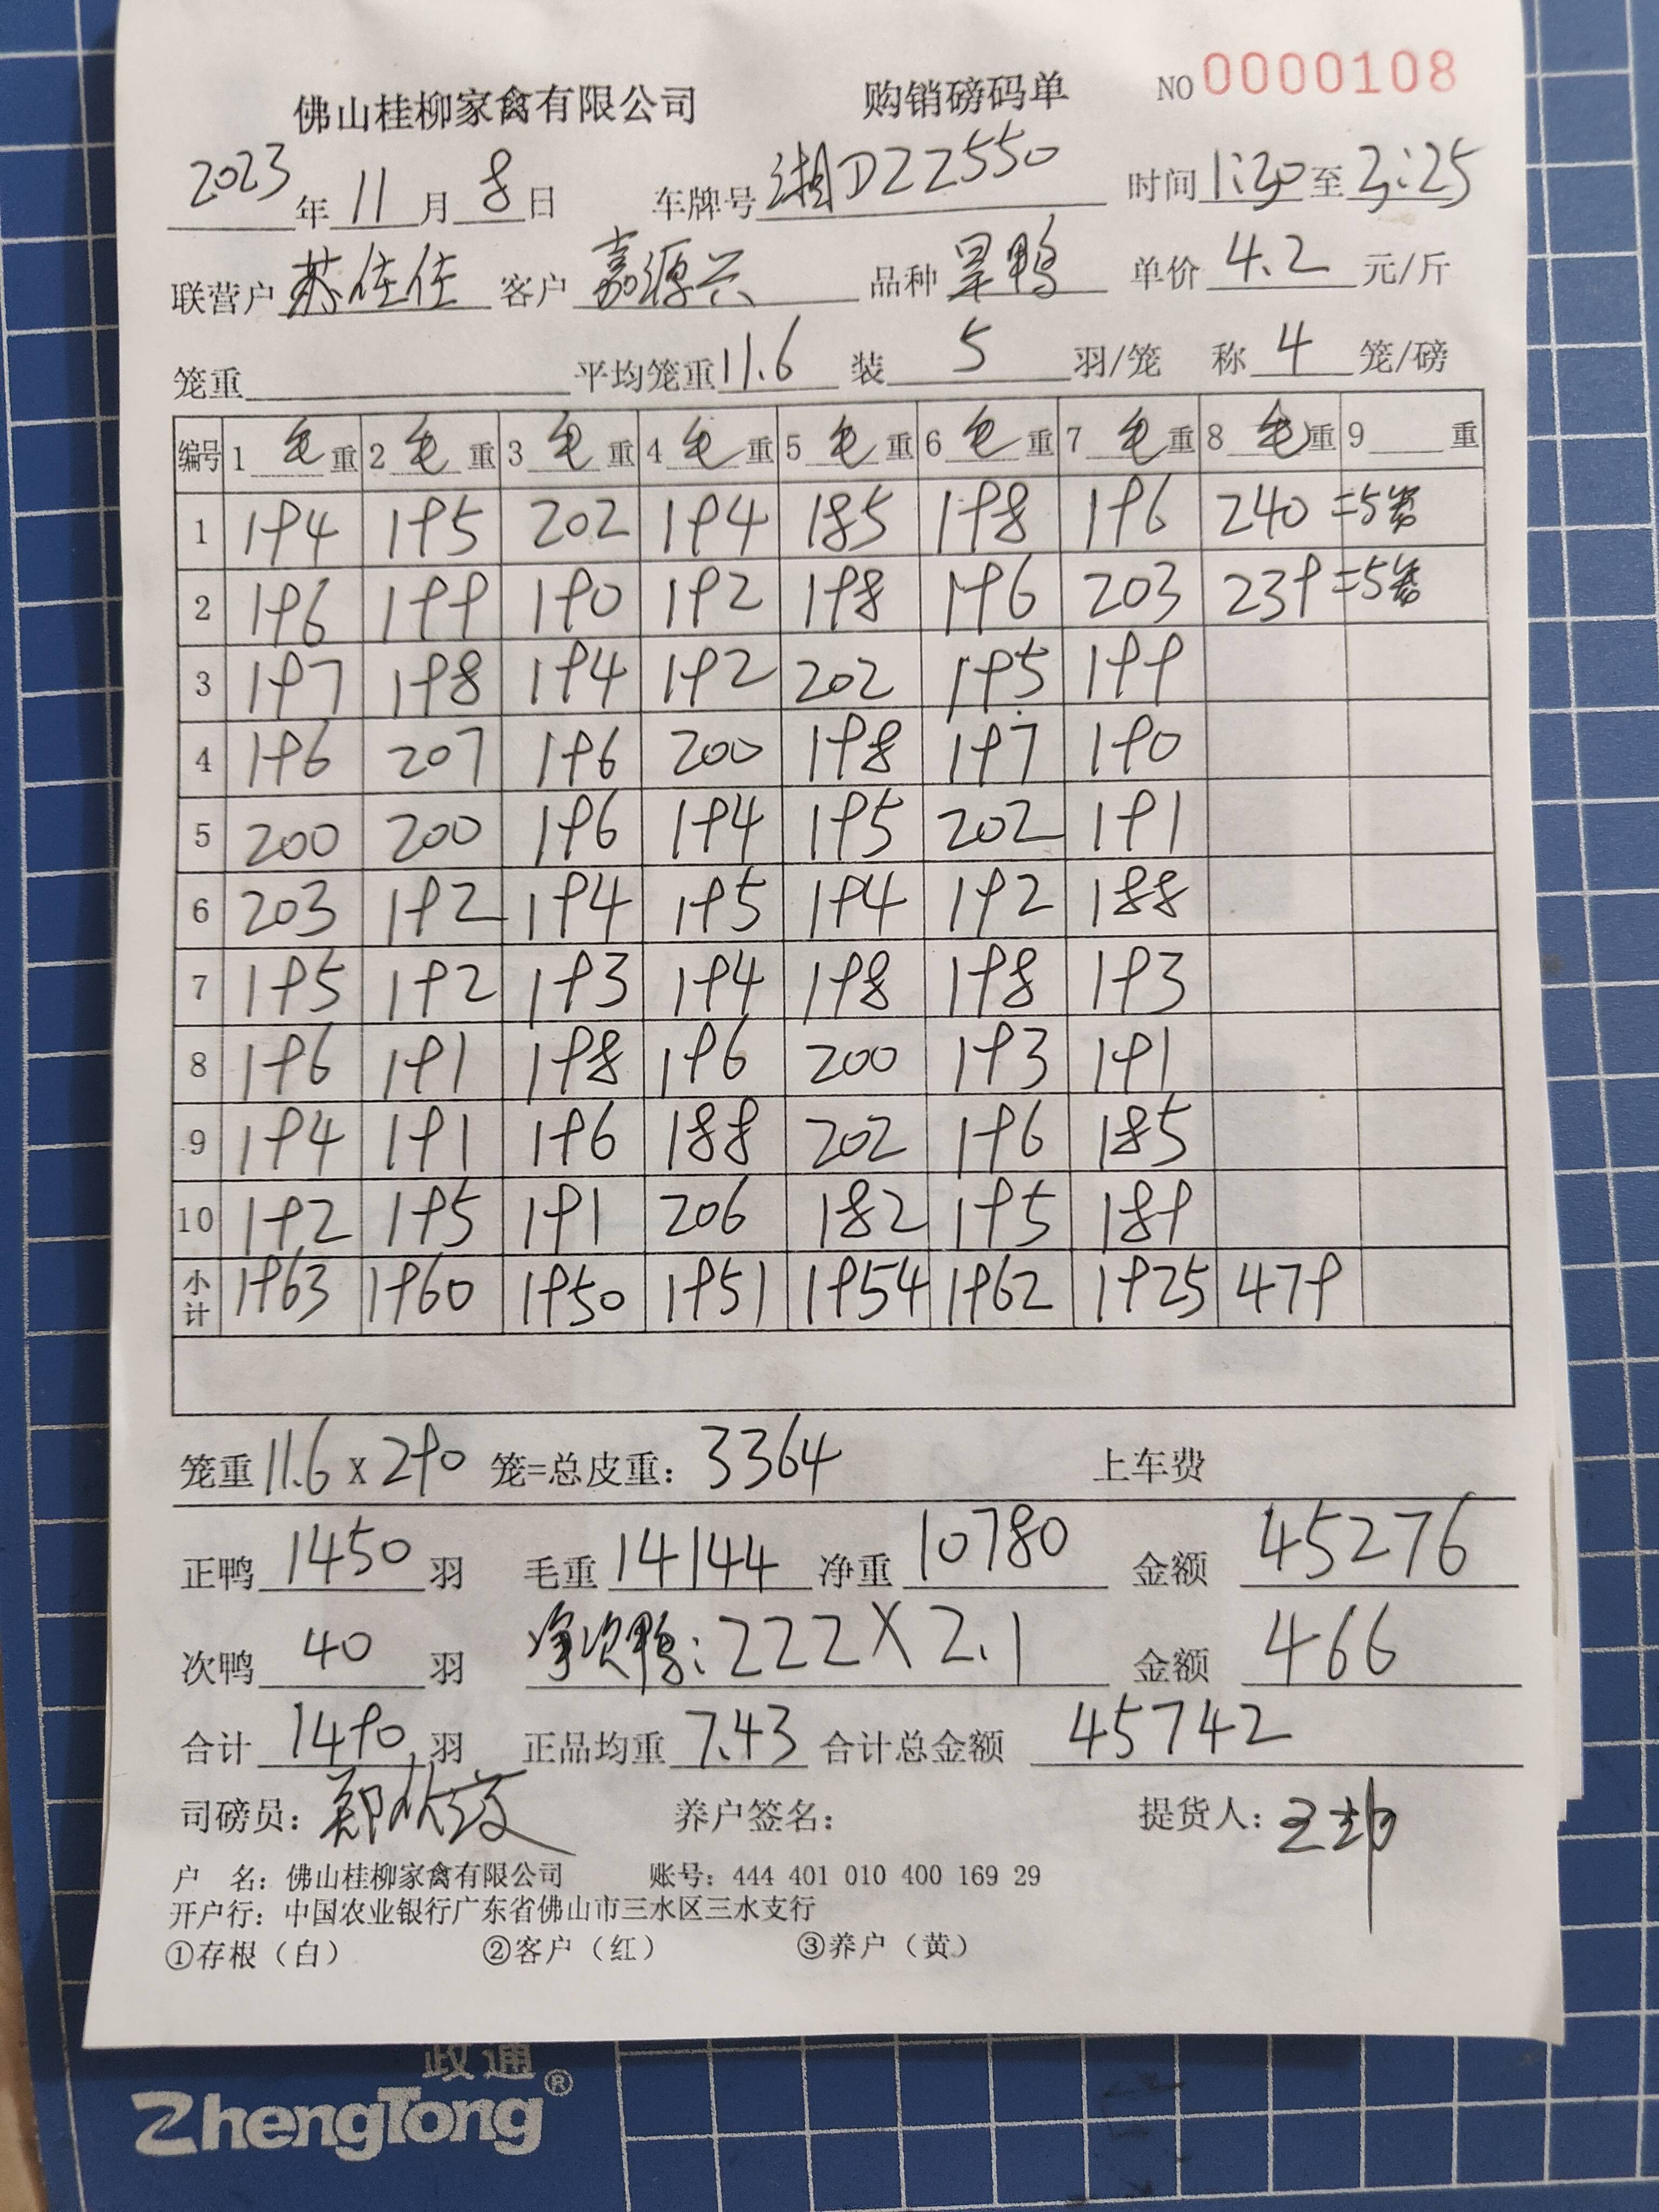 佛山桂柳家禽有限公司 购销磅码单 NO 0000108
2023年11月8日 车牌号 湘D22550 时间 1:30 至 3:25
联营户 苏佳佳 客户 嘉源兴 品种 旱鸭 单价 4.2 元/斤
笼重 平均笼重 11.6 装 5 羽/笼 称 4 笼/磅
编号 1 毛重 2 毛重 3 毛重 4 毛重 5 毛重 6 毛重 7 毛重 8 毛重 9 重
1 194 195 202 194 185 198 196 240 =5笼
2 196 199 190 192 198 196 203 239 =5笼
3 197 198 194 192 202 195 199
4 196 207 196 200 198 197 190
5 200 200 196 194 195 202 191
6 203 192 194 195 194 192 188
7 195 192 193 194 198 198 193
8 196 191 198 196 200 193 191
9 194 191 196 188 202 196 185
10 192 195 191 206 182 195 189
小计 1963 1960 1950 1951 1954 1962 1925 479
笼重 11.6 x 290 笼=总皮重: 3364 上车费
正鸭 1450 羽 毛重 14144 净重 10780 金额 45276
次鸭 40 羽 净次鸭: 222 X 2.1 金额 466
合计 1490 羽 正品均重 7.43 合计总金额 45742
司磅员: 养户签名: 提货人:
户 名: 佛山桂柳家禽有限公司 账号: 444 401 010 400 169 29
开户行: 中国农业银行广东省佛山市三水区三水支行
①存根（白） ②客户（红） ③养户（黄）
政通
ZhengTong®